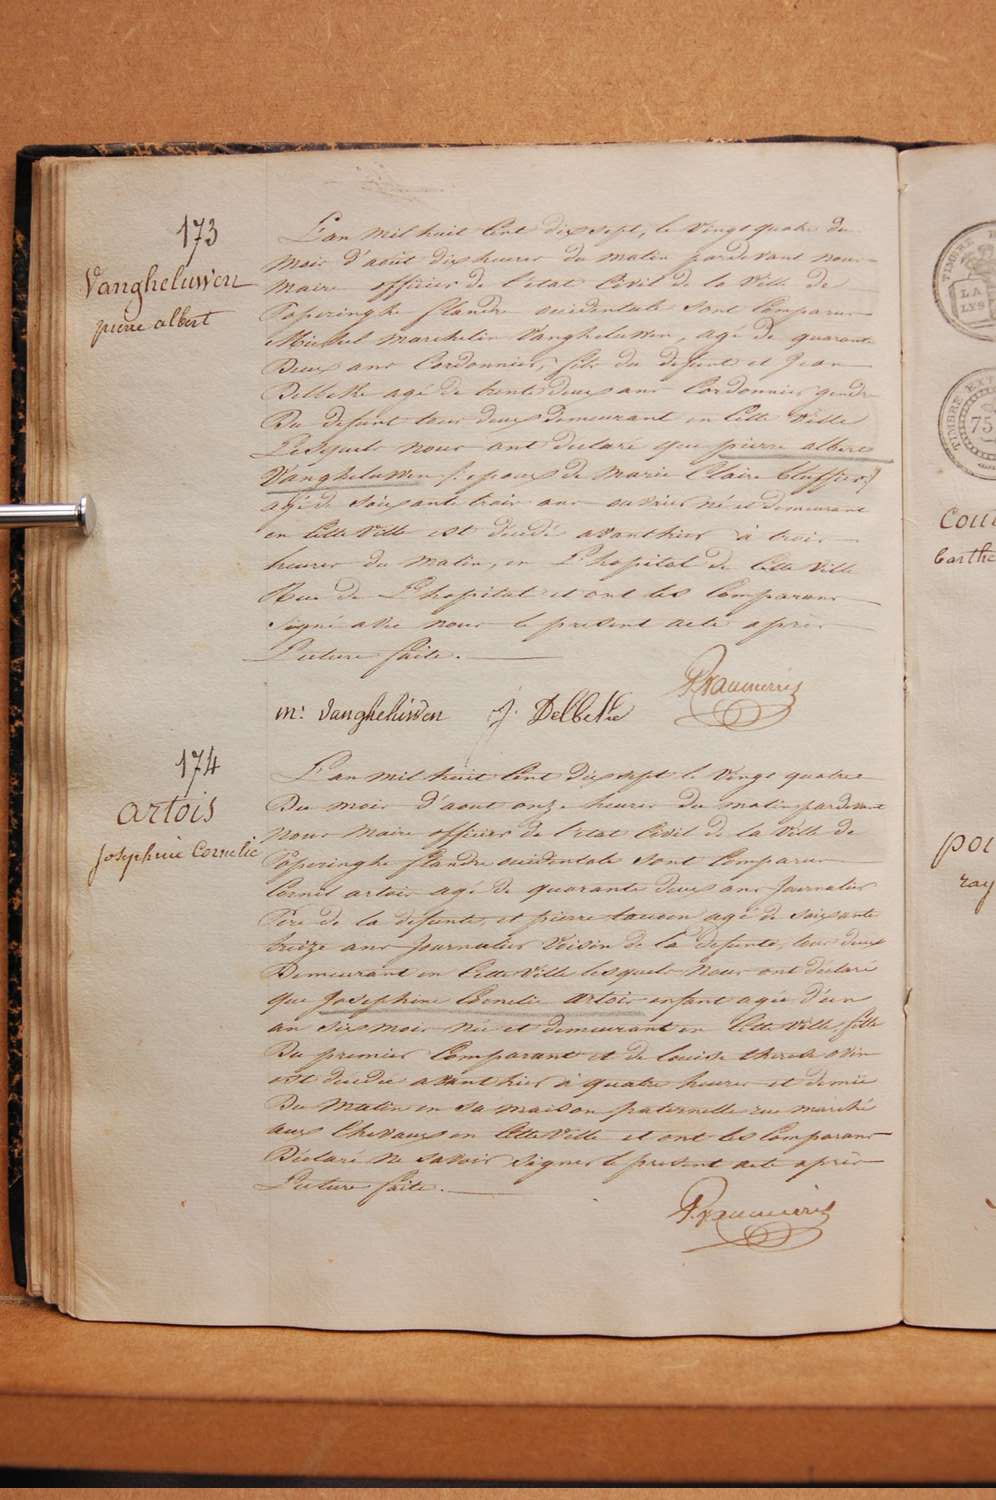 173
Vangheluwen
pierre albert
L'an mil huit Cent dix sept, le vingt quatre du
mois d'aout dix heures du matin pardevant nous
maire officier de l'etat Civil de la ville de
Poperinghe flandre occidentale sont Comparus
Michel marchelin Vangheluwen, agé de quarante
Deux ans Cordonnier, fils du defunt et Jean
Delbekke agé de trente deux ans Cordonnier gendre
Du defunt tous deux Demeurant en Cette Ville
Lesquels nous ont declaré que pierre albert
Vangheluwen epoux de marie Claire
agé de soixante trois ans ouvrier né et demeurant
en Cette Ville est décédé avanthier à trois
heures du matin, en L'hopital de Cette Ville
Rue de L'hopital et ont les Comparans
signé avec nous le present acte apres
Lecture faite.
m: Vangheluwen J. Delbekke
174
artois
Josephine Cornelie
L'an mil huit Cent dix sept le vingt quatre
Du mois d'aout onze heures du matin pardevant
nous maire officier de l'etat Civil de la Ville de
Poperinghe flandre occidentale sont Comparus
Cornil artois agé de quarante deux ans Journalier
Pere de la defunte, et pierre agé de soixante
treize ans Journalier Voisin de la defunte, tous deux
Demeurant en Cette Ville lesquels nous ont déclaré
que Josephine Cornelie artois enfant agée d'un
an six mois née et demeurant en Cette Ville, fille
Du premier Comparant et de Louise therese
est décédée avant hier à quatre heures et demie
Du Matin en sa maison paternelle rue marché
aux Chevaux en Cette Ville et ont les Comparans
Déclaré ne savoir signer le present acte après
Lecture faite.
TIMBRE
LA
LYS
TIMBRE
75
COU
Barthe
POU
ray